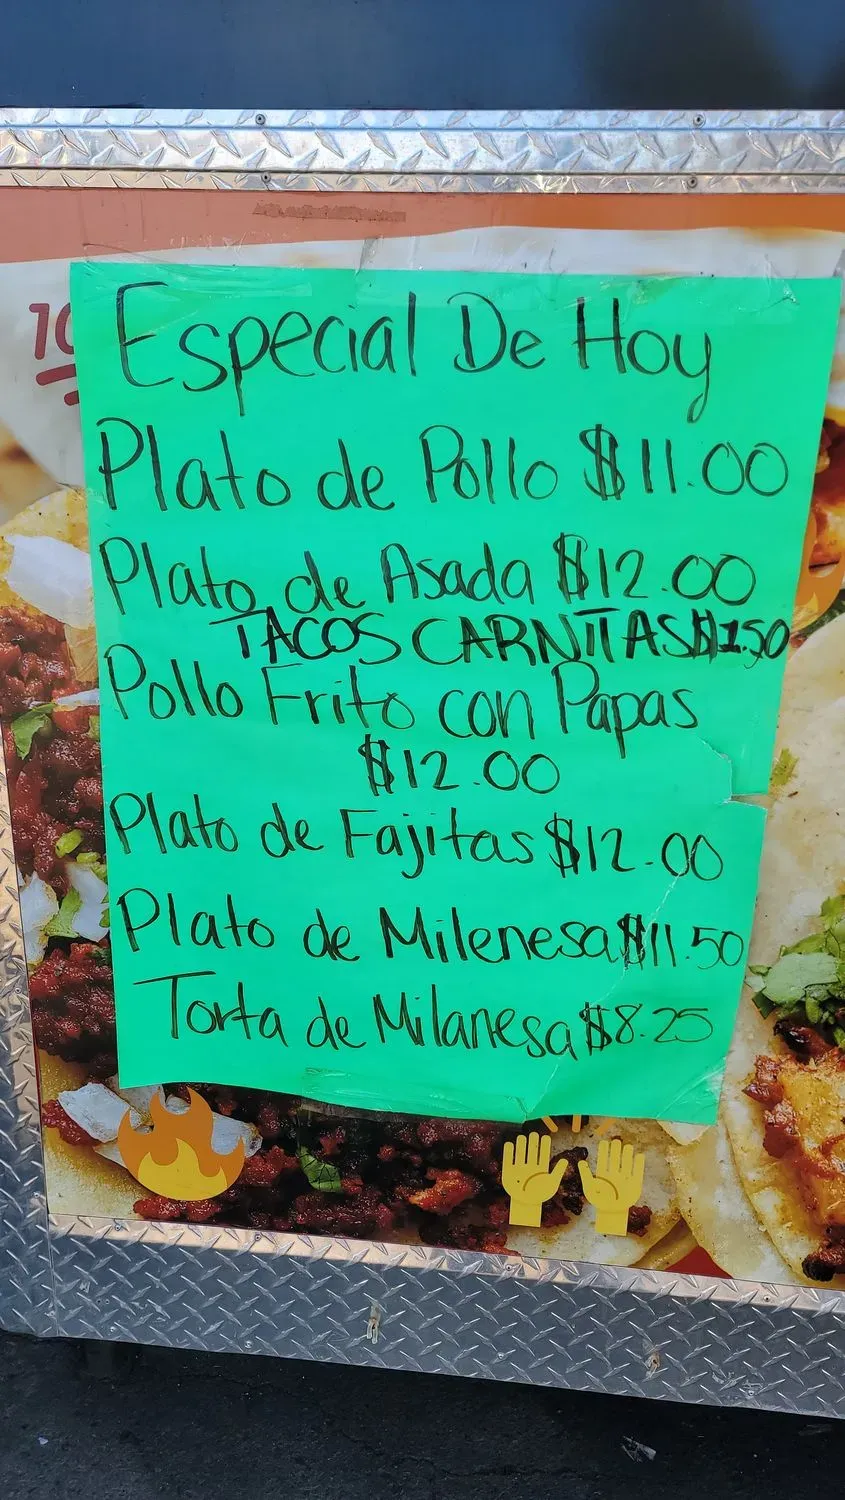 Especial De Hoy
Plato de Pollo $11.00
Plato de Asada $12.00
TACOS CARNITAS $1.50
Pollo Frito con Papas
$12.00
Plato de Fajitas $12.00
Plato de Milenesa $11.50
Torta de Milanesa $8.25